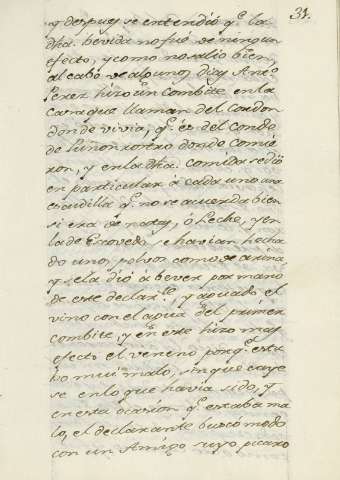 31.
y despues se entendió q.e la
dha. bevida no fué de ningun
efecto, y como no salió bien,
al cabo de algunos dias Ant.o
Perez hizo un combite en la
casa que llaman del Cordon
donde vivia, q.e es del Conde
de Puñonrostro donde comie
ron, y en la dha. comida se dió
en particular á cada uno una
escudilla q.e no se acuerda bien
si era de natas, ó Leche, y en
la de Escovedo se havian hecha
do unos polvos como de arina
y se la dió á bever por mano
de este declar.te, y aguado el
vino con el agua del primer
combite, y en este hizo mas
efecto el veneno porq.e estu
bo mui malo, sin que caye
se en lo que havia sido, y
en esta ocasion q.e estaba ma
lo, el declarante buscó modo
con un Amigo suyo picaro